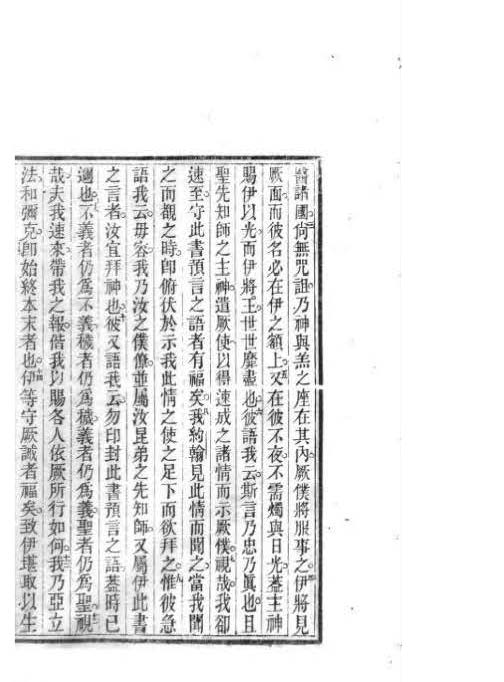 醫諸國尙無咒詛乃神與羔之座在其內厥僕將服事之伊將見
厥面而彼名必在伊之額上又在彼不夜不需燭與日光葢主神
賜伊以光而伊將王世世靡盡也彼語我云斯言乃忠乃眞也且
聖先知師之主神遣厥使以得速成之諸情而示厥僕視哉我卻
速至守此書預言之語者有福矣我約翰見此情而聞之當我聞
之而觀之時卽俯伏於示我此情之使之足下而欲拜之惟彼急
語我云毋容我乃汝之僕僚並屬汝昆弟之先知師又屬伊此書
之言者汝宜拜神也彼又語我云勿印封此書預言之語葢時已
邇也不義者仍爲不義穢者仍爲穢義者仍爲義聖者仍爲聖視
哉夫我速來帶我之報偕我以賜各人依厥所行如何我乃亞立
法和彌克卽始終本末者也伊等守厥誡者福矣致伊堪取以生